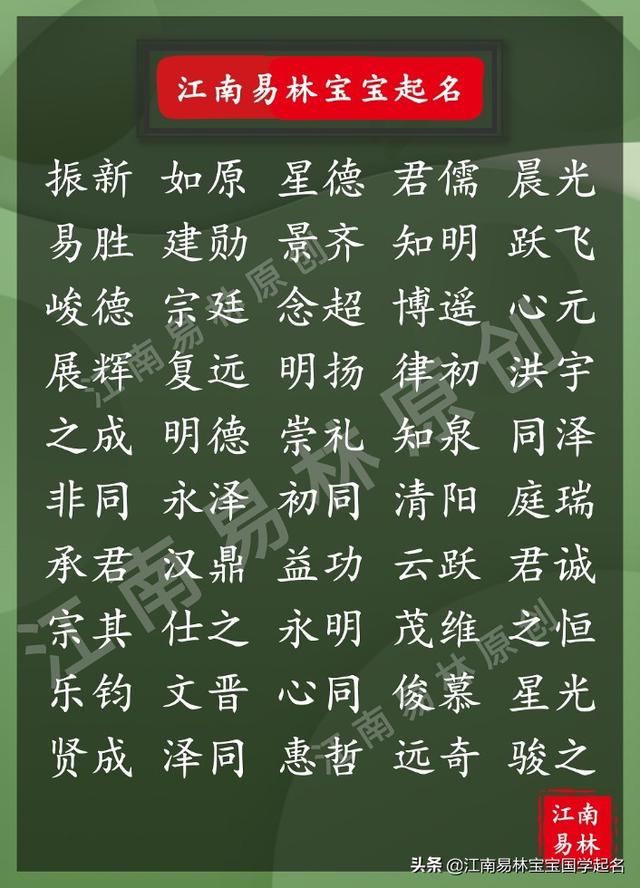 江南易林宝宝起名
振新 如原 星德 君儒 晨光
易胜 建勋 景齐 知明 跃飞
峻德 宗廷 念超 博遥 心元
展辉 复远 明扬 律初 洪宇
之成 明德 崇礼 知泉 同泽
非同 永泽 初同 清阳 庭瑞
承君 汉鼎 益功 云跃 君诚
宗其 仕之 永明 茂维 之恒
乐钧 文晋 心同 俊慕 星光
贤成 泽同 惠哲 远奇 骏之
江南易林原创
江南易林原创
江南易林原创
江南
易林
头条 @江南易林宝宝国学起名